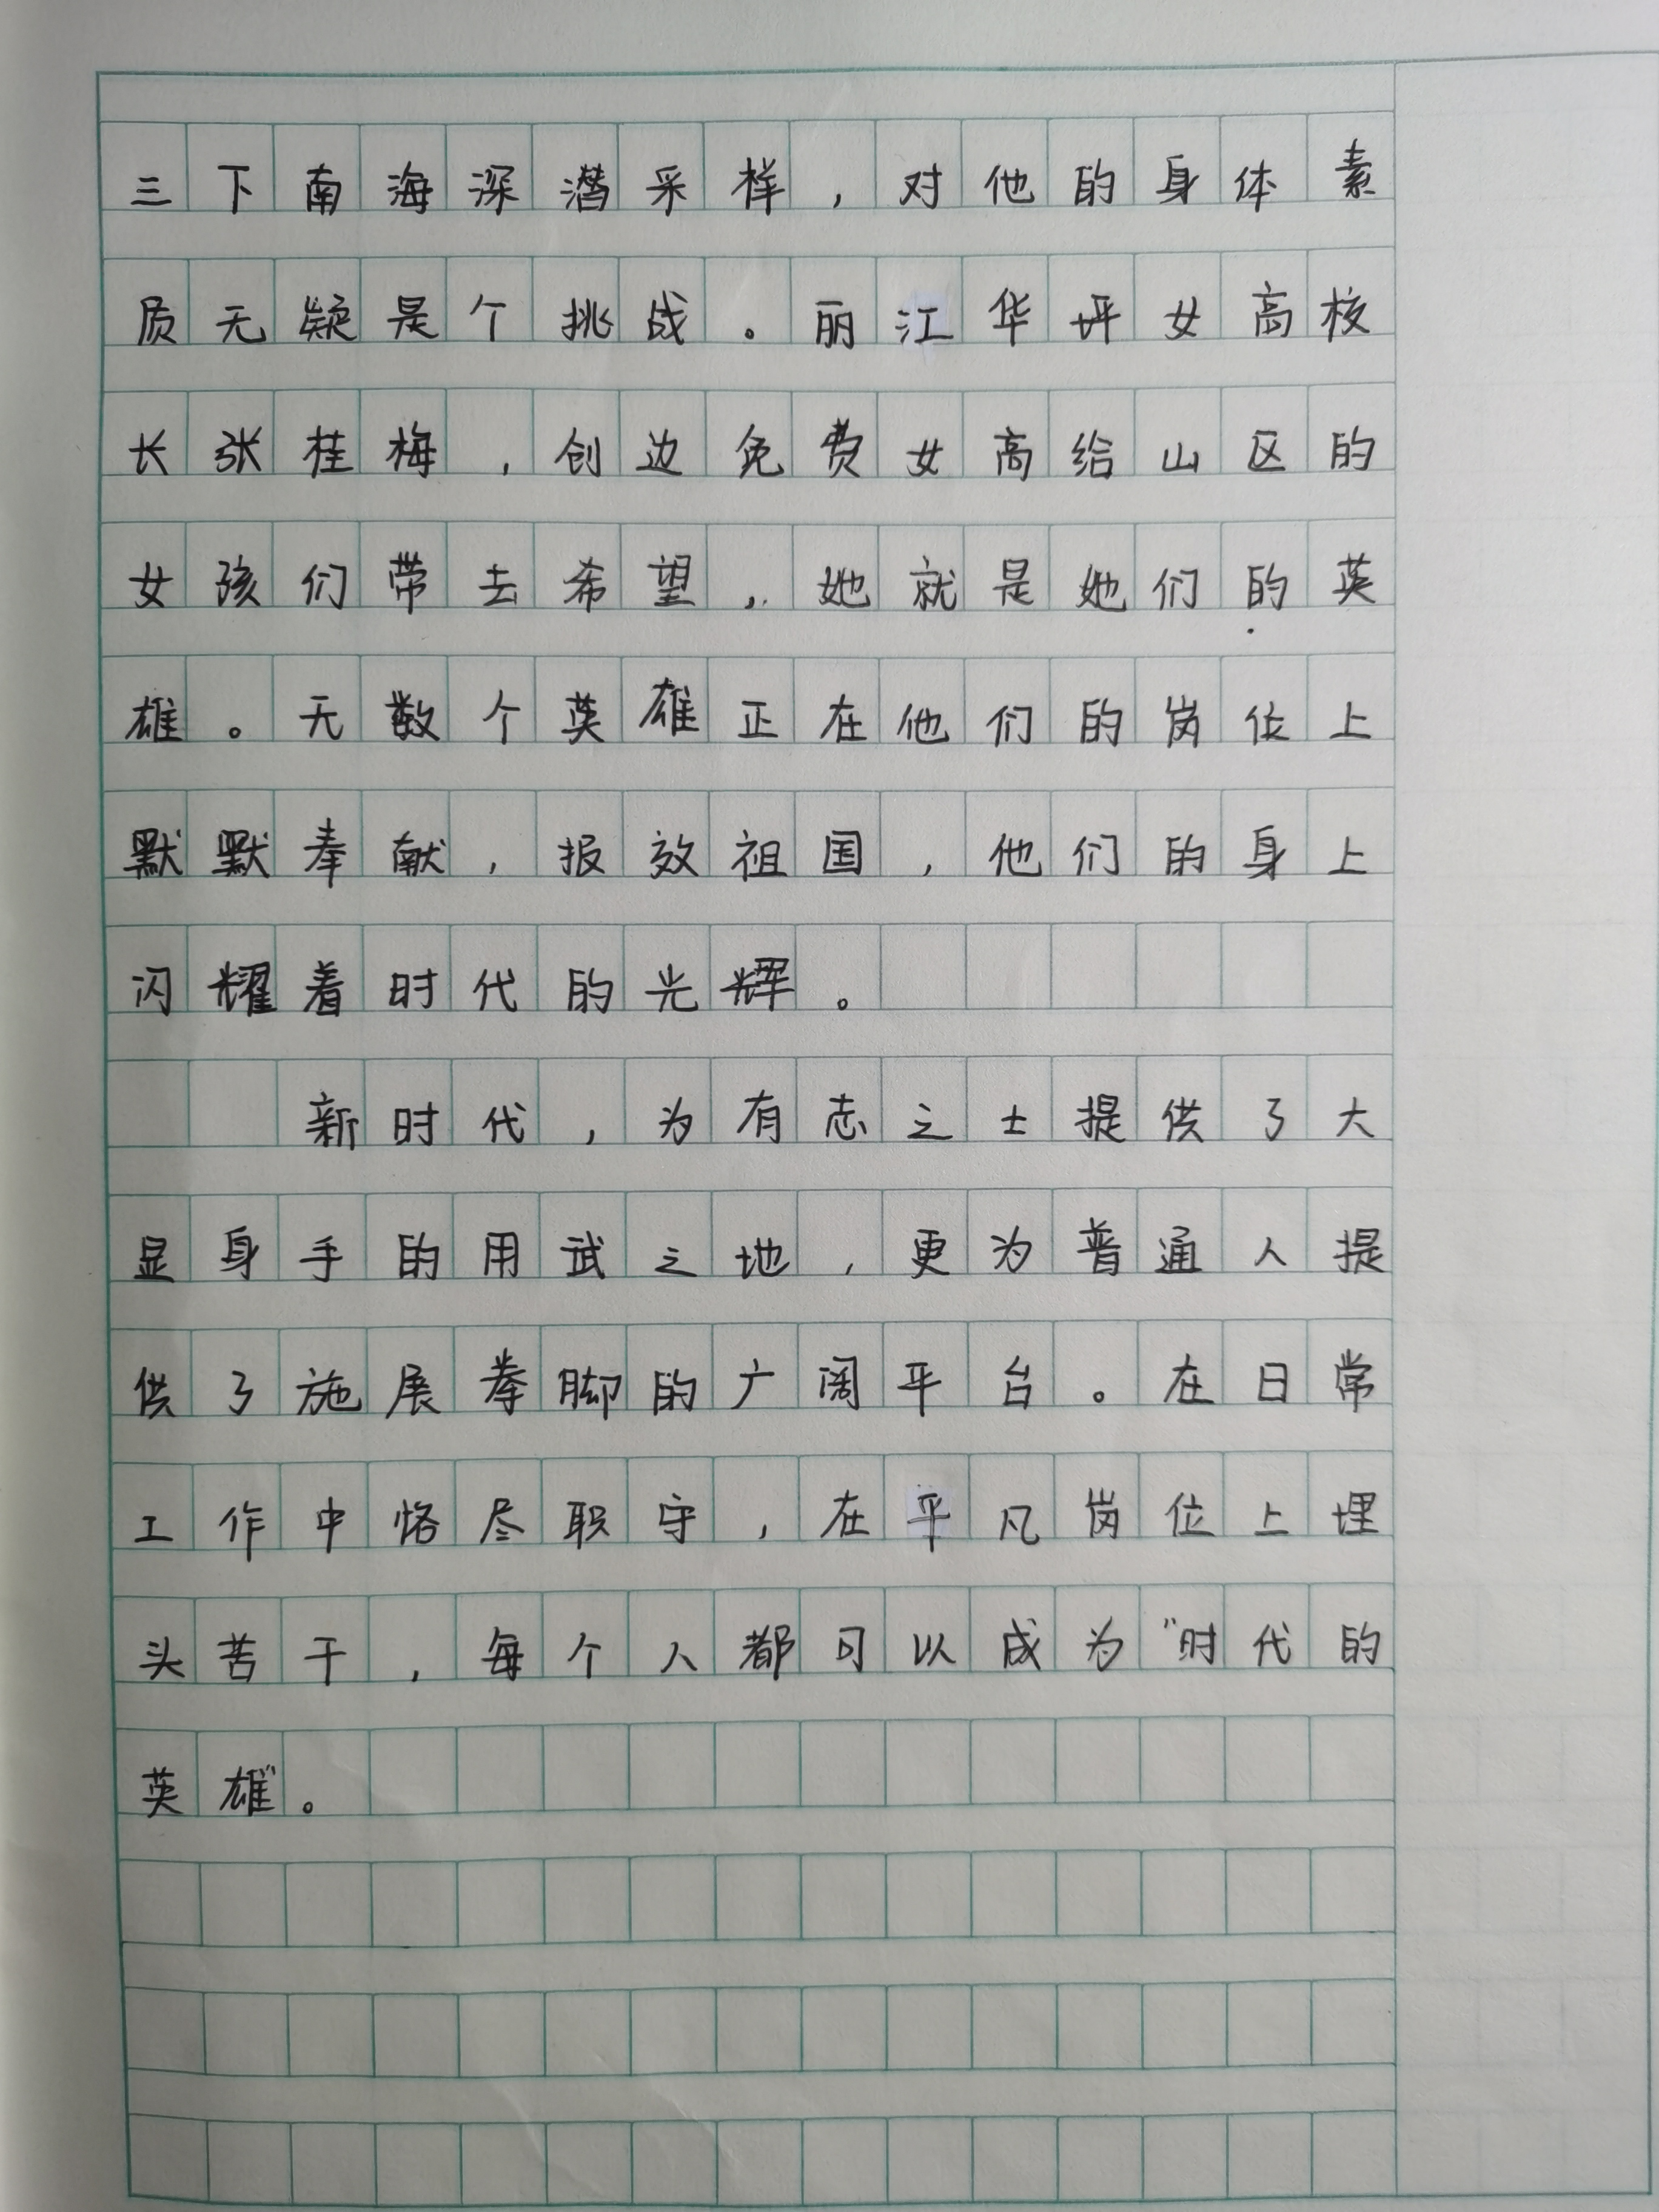 三下南海深潜采样，对他的身体素
质无疑是个挑战。丽江华坪女高校
长张桂梅，创边免费女高给山区的
女孩们带去希望，她就是她们的英
雄。无数个英雄正在他们的岗位上
默默奉献，报效祖国，他们的身上
闪耀着时代的光辉。
新时代，为有志之士提供了大
显身手的用武之地，更为普通人提
供了施展拳脚的广阔平台。在日常
工作中恪尽职守，在平凡岗位上埋
头苦干，每个人都可以成为“时代的
英雄”。